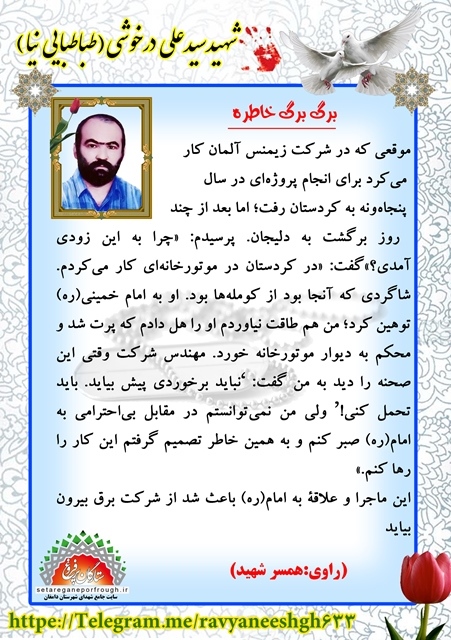 شهیدسیدعلی درخوشی (طباطبایی نیا)
برگی برگی خاطره
موقعی که در شرکت زیمنس آلمان کار
می‌کرد برای انجام پروژه‌ای در سال
پنجاه‌ونه به کردستان رفت؛ اما بعد از چند
روز برگشت به دلیجان. پرسیدم: «چرا به این زودی
آمدی؟»گفت: «در کردستان در موتورخانه‌ای کار می‌کردم.
شاگردی که آنجا بود از کومله‌ها بود. او به امام خمینی(ره)
توهین کرد؛ من هم طاقت نیاوردم او را هل دادم که پرت شد و
محکم به دیوار موتورخانه خورد. مهندس شرکت وقتی این
صحنه را دید به من گفت: ‘نباید برخوردی پیش بیاید. باید
تحمل کنی!’ ولی من نمی‌توانستم در مقابل بی‌احترامی به
امام(ره) صبر کنم و به همین خاطر تصمیم گرفتم این کار را
رها کنم.»
این ماجرا و علاقهٔ به امام(ره) باعث شد از شرکت برق بیرون
بیاید
(راوی:همسر شهید)
ستارگان پرفروغ
setareganeporfrough.ir
سایت جامع شهدای شهرستان دامغان
https://Telegram.me/ravyaneeshgh633